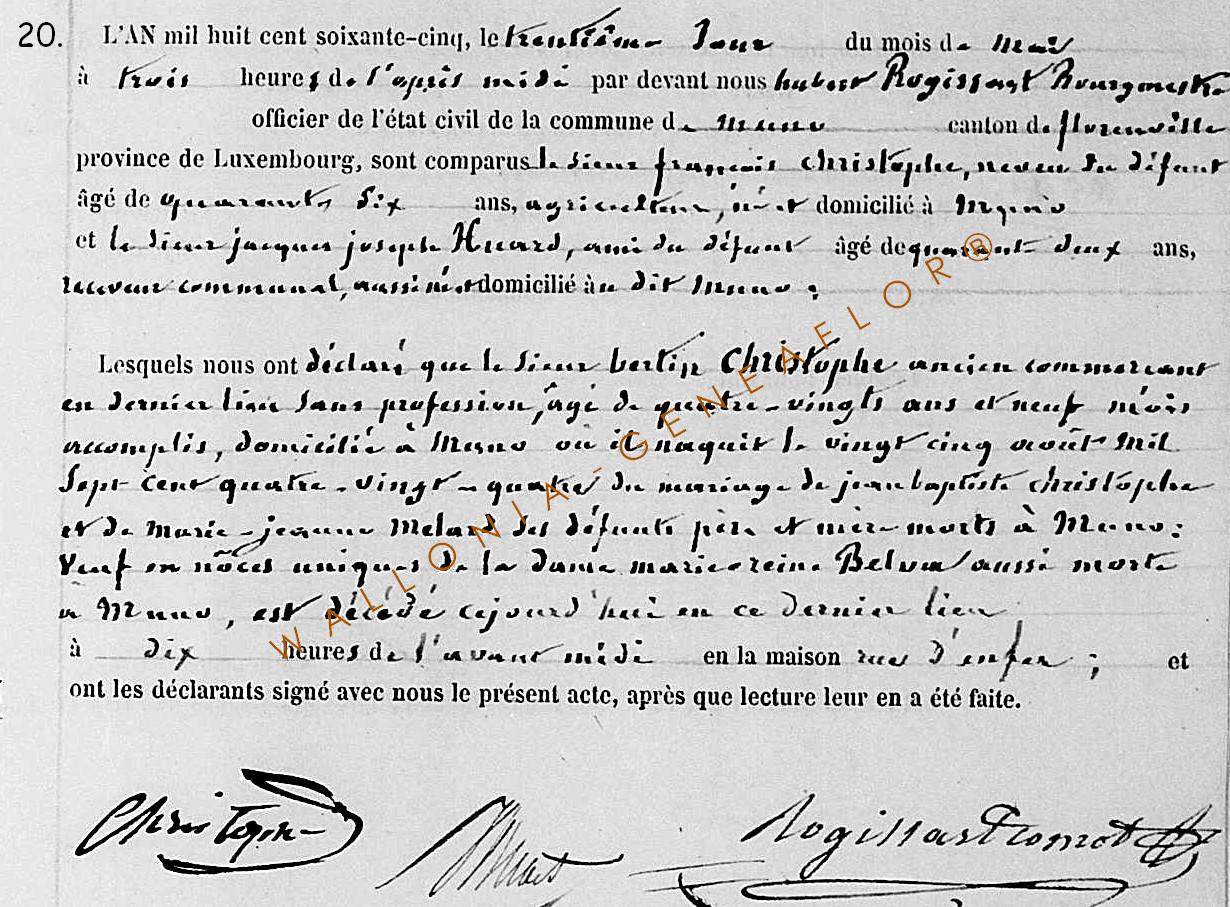 20. L'AN mil huit cent soixante-cinq, le trentième Jour du mois de Mai
à trois heures de l'après midi par devant nous hubert Rogissart Bourgmestre
officier de l'état civil de la commune de Muno canton de florenville
province de Luxembourg, sont comparus le sieur françois christophe, neveu du défunt
âgé de quarante six ans, agriculteur, né et domicilié à Muno
et le sieur jacques joseph Huard, ami du défunt âgé de quarante deux ans,
receveur communal, aussi né et domicilié au dit Muno ;
Lesquels nous ont déclaré que le sieur bertin Christophe ancien commerçant
en dernier lieu sans profession, âgé de quatre-vingts ans et neuf mois
accomplis, domicilié à Muno où il naquit le vingt cinq août mil
Sept cent quatre-vingt-quatre du mariage de jean baptiste christophe
et de marie-jeanne Melard ses défunts père et mère morts à Muno ;
Veuf en nôces uniques de la dame marie reine Belva aussi morte
à Muno, est décédé cejourd'hui en ce dernier lieu
à dix heures de l'avant midi en la maison rue d'enfer ; et
ont les déclarants signé avec nous le présent acte, après que lecture leur en a été faite.
Christophe Huart Rogissart
WALLONIA-GENEAFLOR®